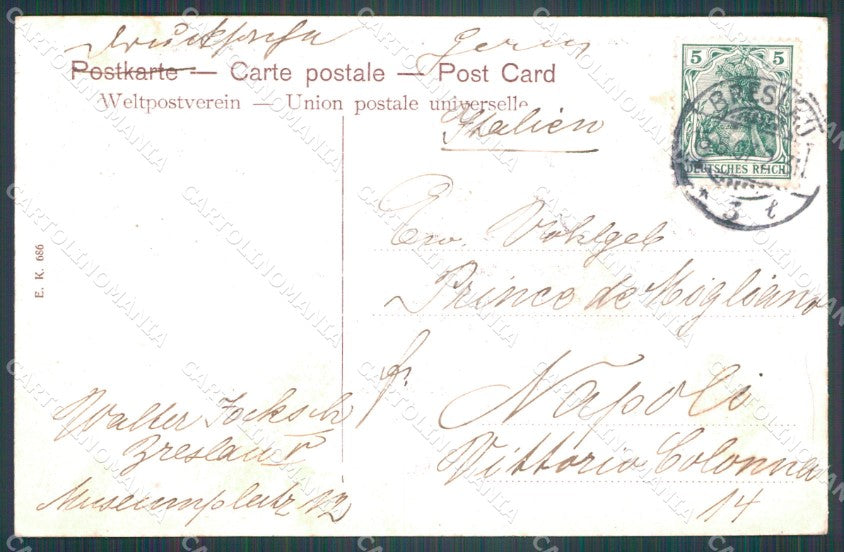 Drucksache
Postkarte — Carte postale — Post Card
Weltpostverein — Union postale universelle
Italien
5 5
DEUTSCHES REICH
BRESLAU
3 t
E. K. 686
Ew. Wohlgeb
Prince de Migliano
Napoli
Vittoria Colonna
14
Walter Jocksch
Breslau V
Museumplatz 12
CARTOLINOMANIA